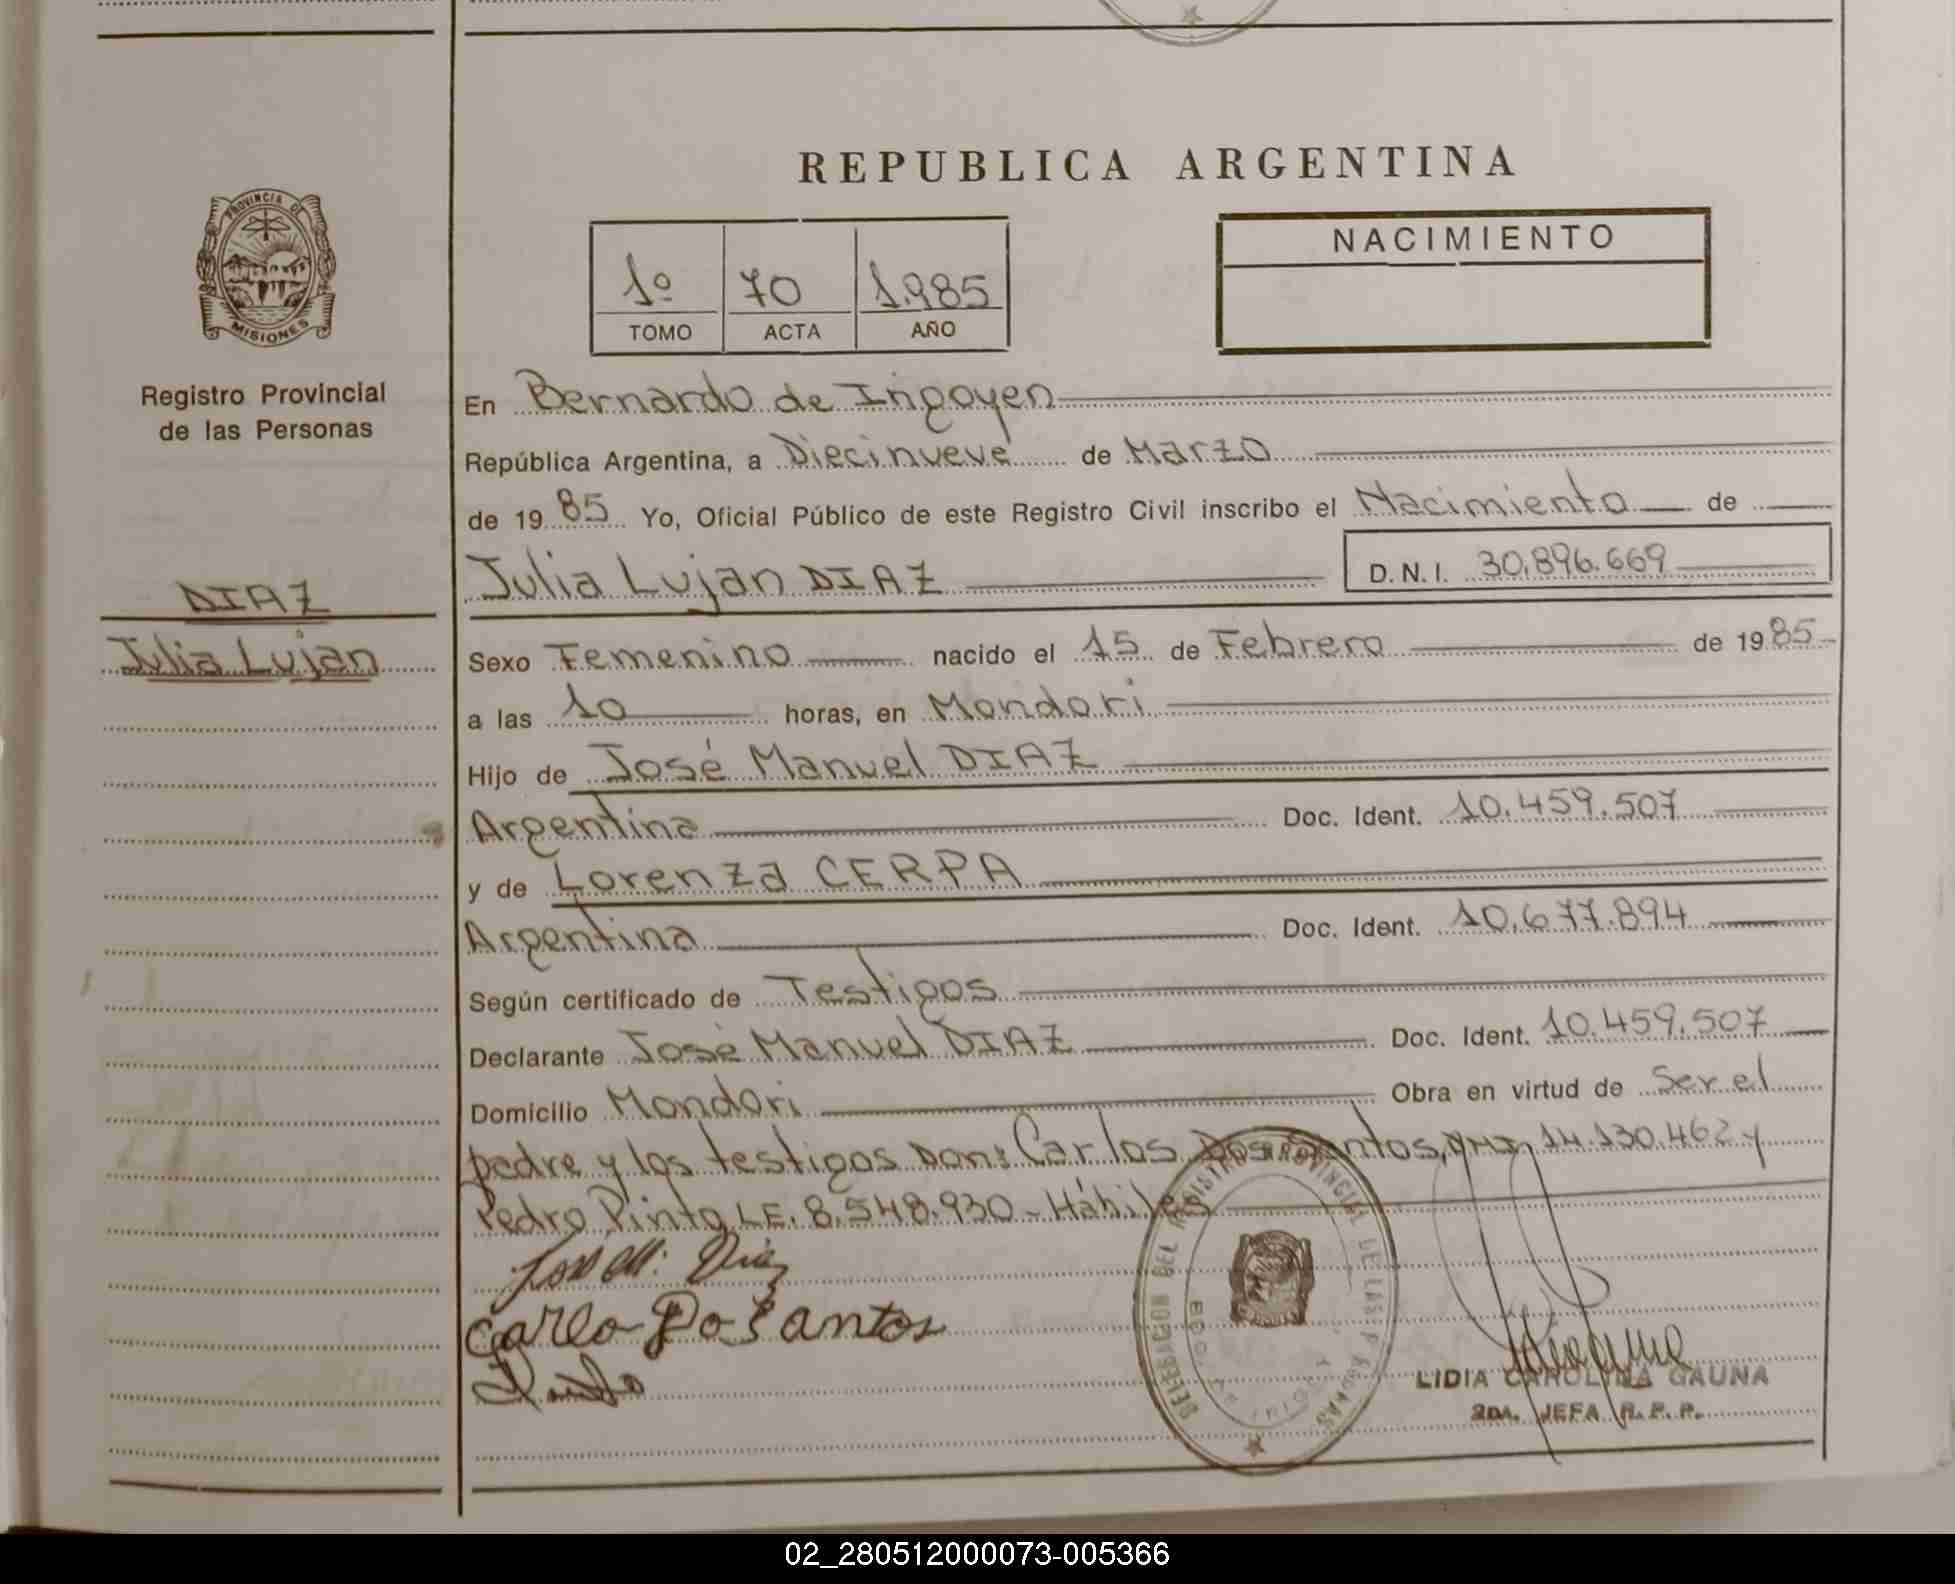 REPUBLICA ARGENTINA
PROVINCIA DE
MISIONES
Registro Provincial
de las Personas
1º 70 1.985
TOMO ACTA AÑO
NACIMIENTO
En Bernardo de Irigoyen
República Argentina, a Diecinueve de Marzo
de 1985 Yo, Oficial Público de este Registro Civil inscribo el Nacimiento de
Julia Lujan DIAZ D.N.I. 30.896.669
DIAZ
Julia Lujan
Sexo Femenino nacido el 15 de Febrero de 1985
a las 10 horas, en Mondori
Hijo de José Manuel DIAZ
Argentina Doc. Ident. 10.459.507
y de Lorenza CERPA
Argentina Doc. Ident. 10.677.894
Según certificado de Testigos
Declarante José Manuel DIAZ Doc. Ident. 10.459.507
Domicilio Mondori Obra en virtud de Ser el
padre y los testigos Don: Carlos Dos Santos, 14.130.462 y
Pedro Pinto L.E. 8.548.930 - Hábiles
José M. Diaz
Carlo Do Santos
DELEGACION DEL REGISTRO PROVINCIAL DE LAS PERSONAS
LIDIA CAROLINA GAUNA
2DA. JEFA R.P.P.
02_280512000073-005366